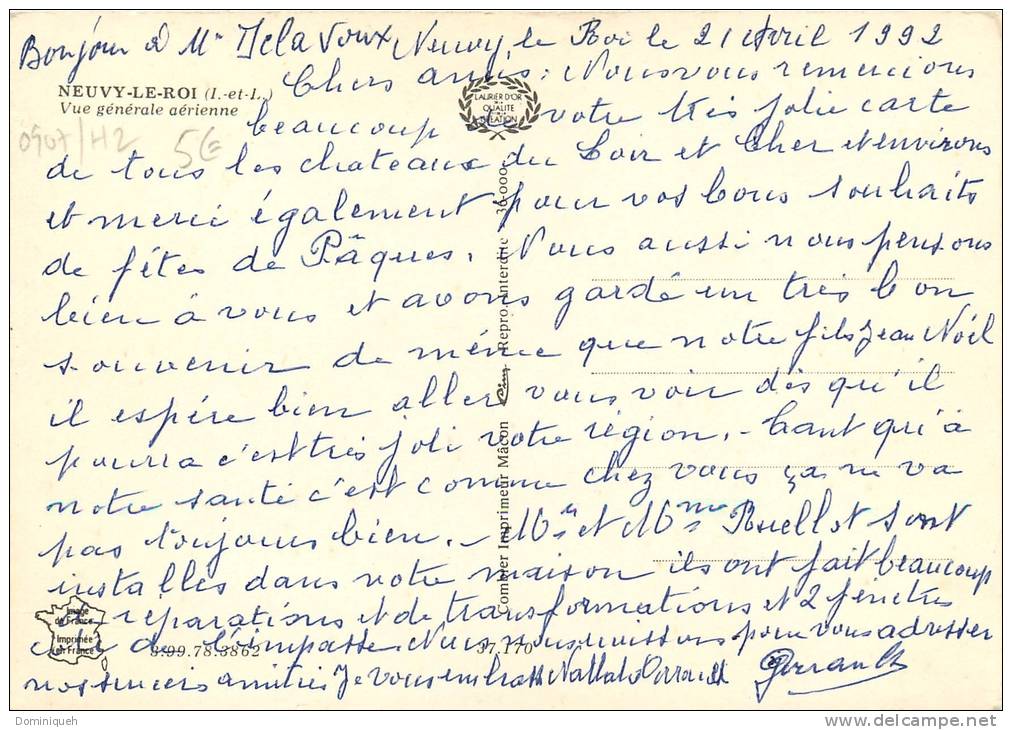 Bonjour à Mr Neuvy le Roi le 21 Avril 1992
NEUVY-LE-ROI (I.-et-L.)
Vue générale aérienne
LAURIER D'OR
QUALITÉ
CRÉATION
0907/H2 5€
Chers amis : Nous vous remercions
beaucoup de votre très jolie carte
de tous les chateaux du Loir et Cher et environs
et merci également pour vos bons souhaits
de fêtes de Pâques. Nous aussi nous pensons
bien à vous et avons gardé un très bon
souvenir de même que notre fils Jean Noël
il espère bien aller vous voir dès qu'il
pourra c'est très joli votre région. - Tant qu'à
notre santé c'est comme chez vous ça ne va
pas toujours bien. - Mr et Mme Ruellot sont
installés dans notre maison ils ont fait beaucoup
réparations et de transformations et 2 fenêtres
de l'impasse. Nous nous unissons pour vous adresser
nos sincères amitiés Je vous embrasse Perrault
Perrault
Combier Imprimeur Mâcon Cim Repro. interdite 36.000
Image
de France
Imprimée
en France
3.99.78.3862
37.170
Dominiqueh
delcampe.net